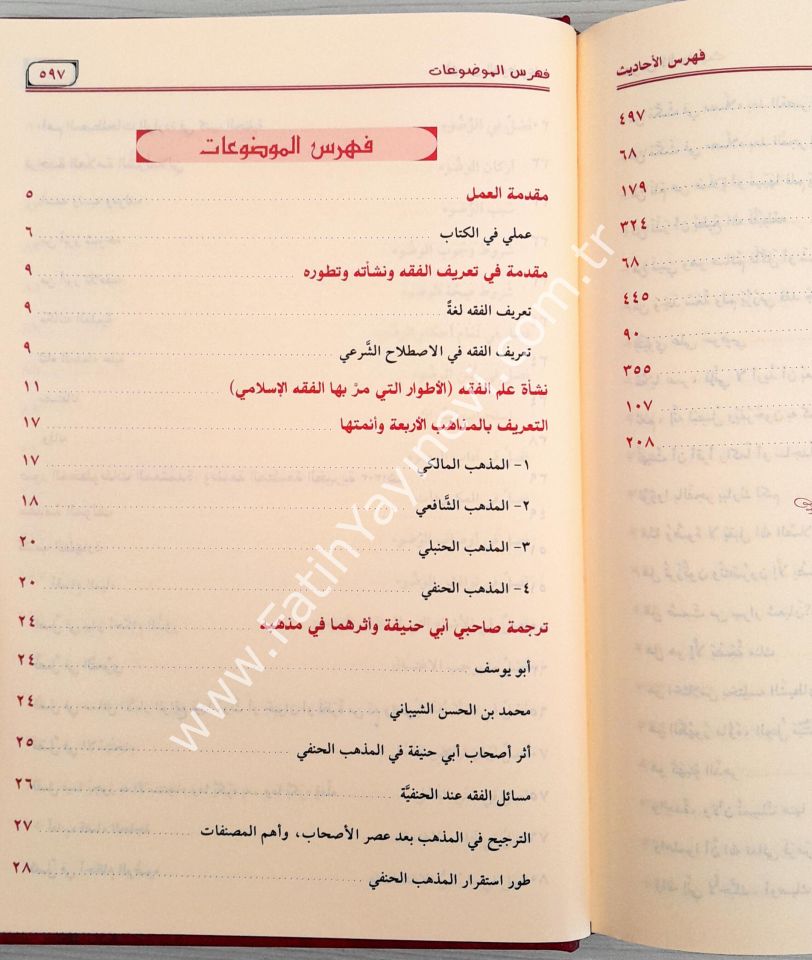 فهرس الأحاديث
٤٩٧
٦٨
١٧٩
٣٢٤
٦٨
٤٤٥
٩٠
٣٥٥
١٠٧
٢٠٨
فهرس الموضوعات ٥٩٧
فهرس الموضوعات
مقدمة العمل ٥
عملي في الكتاب ٦
مقدمة في تعريف الفقه ونشأته وتطوره ٩
تعريف الفقه لغةً ٩
تعريف الفقه في الاصطلاح الشَّرعي ٩
نشأة علم الفقه (الأطوار التي مرَّ بها الفقه الإسلامي) ١١
التعريف بالمذاهب الأربعة وأئمتها ١٧
١- المذهب المالكي ١٧
٢- المذهب الشَّافعي ١٨
٣- المذهب الحنبلي ٢٠
٤- المذهب الحنفي ٢٠
ترجمة صاحبي أبي حنيفة وأثرهما في مذهبه ٢٤
أبو يوسف ٢٤
محمد بن الحسن الشيباني ٢٤
أثر أصحاب أبي حنيفة في المذهب الحنفي ٢٥
مسائل الفقه عند الحنفيَّة ٢٦
الترجيح في المذهب بعد عصر الأصحاب، وأهم المصنفات ٢٧
طور استقرار المذهب الحنفي ٢٨
www.FatihYayinevi.com.tr